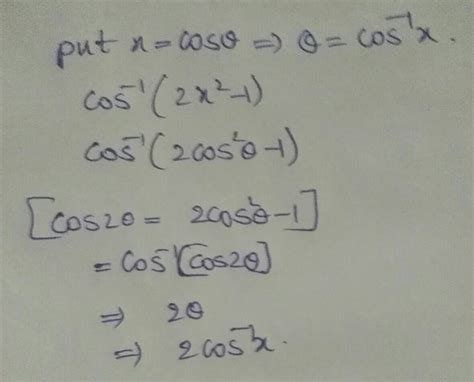 put x = cosθ ⇒ θ = cos⁻¹x.
cos⁻¹(2x²-1)
cos⁻¹(2cos²θ-1)
[cos2θ = 2cos²θ-1]
= cos⁻¹[cos2θ]
⇒ 2θ
⇒ 2cos⁻¹x.